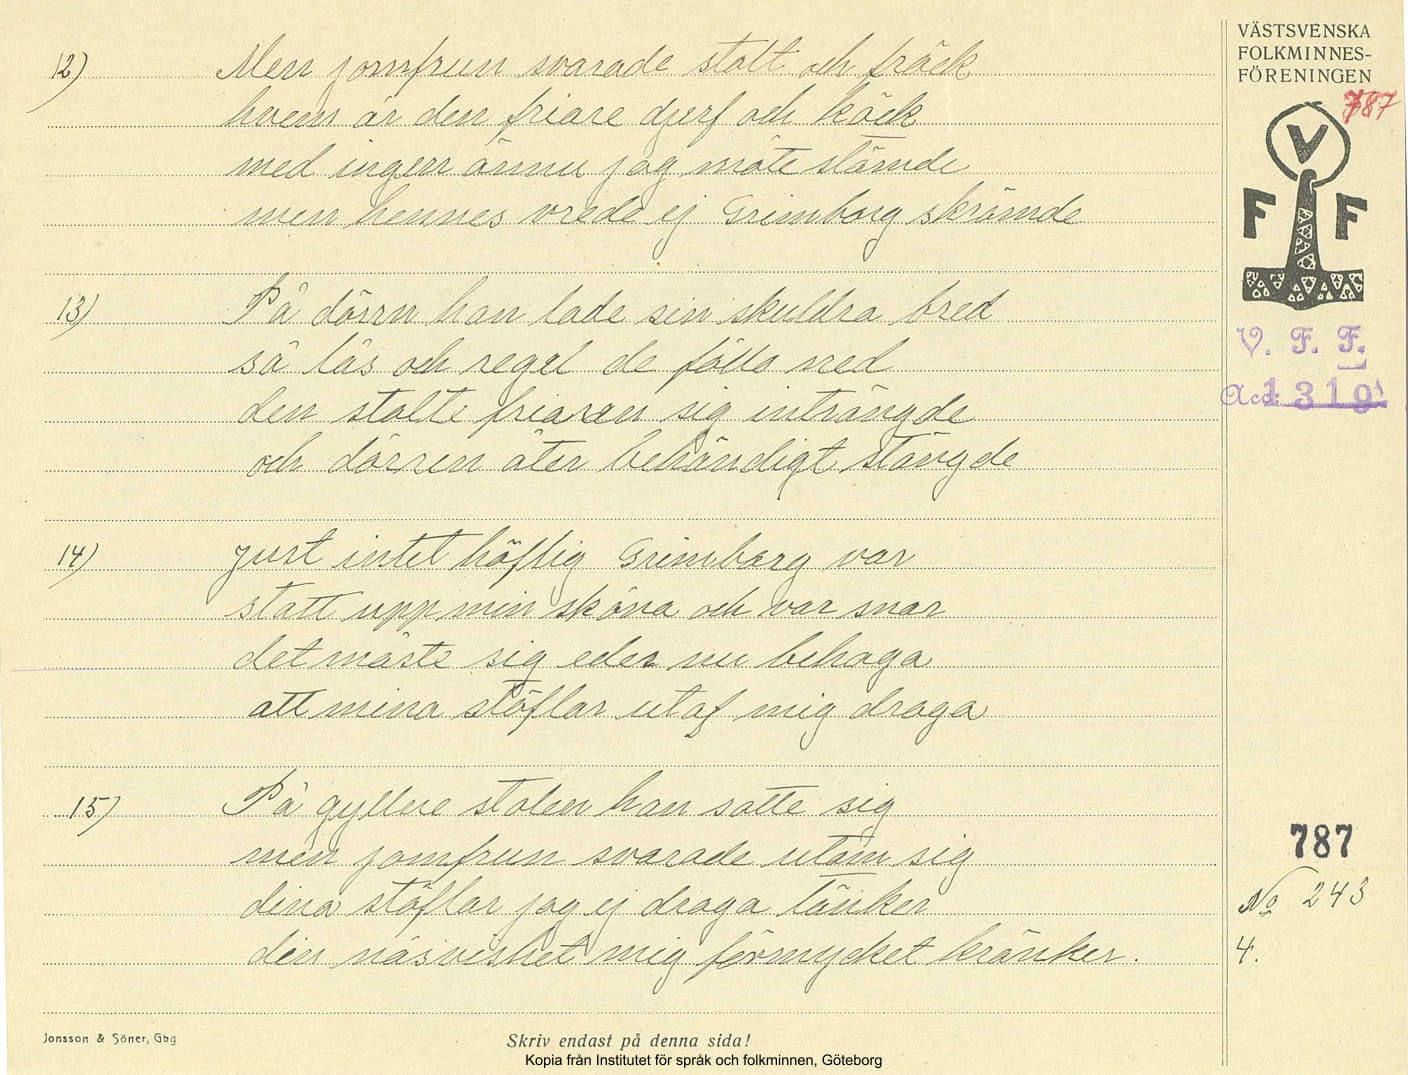 VÄSTSVENSKA
FOLKMINNES-
FÖRENINGEN
787
V
F F
V. F. F.
Acc: 1319
12) Men jomfrun svarade stolt och fräck
hvem är den friare djerf och käck
med ingen ännu jag möte stämde
men hennes vrede ej Grimborg skrämde
13) På dörrn han lade sin skuldra bred
så lås och regel de föllo ned
den stolte friaren sig inträngde
och dörren åter behändigt stängde
14) Just intet höflig Grimborg var
statt upp min sköna och var snar
det måste sig eder nu behaga
att mina stöflar utaf mig draga
15) På gyllne stolen han satte sig
men jomfrun svarade utom sig
dina stöflar jag ej draga tänker
din näsvishet mig förmycket kränker.
787
No 243
4.
Jonsson & Söner, Gbg
Skriv endast på denna sida!
Kopia från Institutet för språk och folkminnen, Göteborg